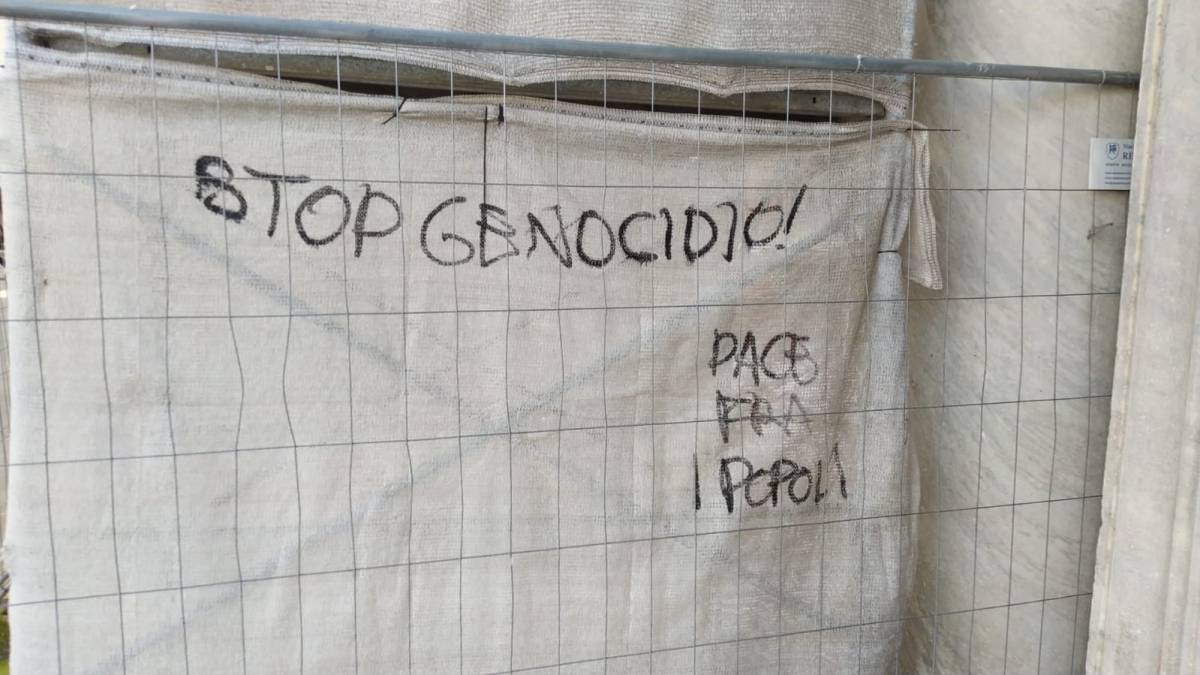 STOP GENOCIDIO!
PACE
FRA
I POPOLI